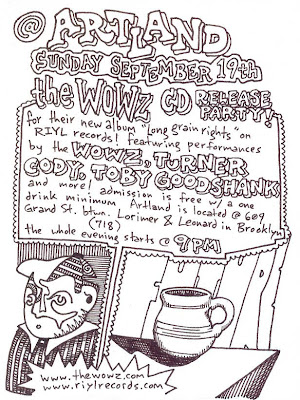 @ ARTLAND
SUNDAY SEPTEMBER 19th
the WOWZ CD RELEASE PARTY!
for their new album "Long grain rights" on
RIYL records! featuring performances
by the WOWZ, TURNER
CODY, TOBY GOODSHANK
and more! admission is free w/ a one
drink minimum Artland is located @ 609
Grand St. btwn. Lorimer & Leonard in Brooklyn
(718)
the whole evening starts @ 9PM
www.thewowz.com
www.riylrecords.com